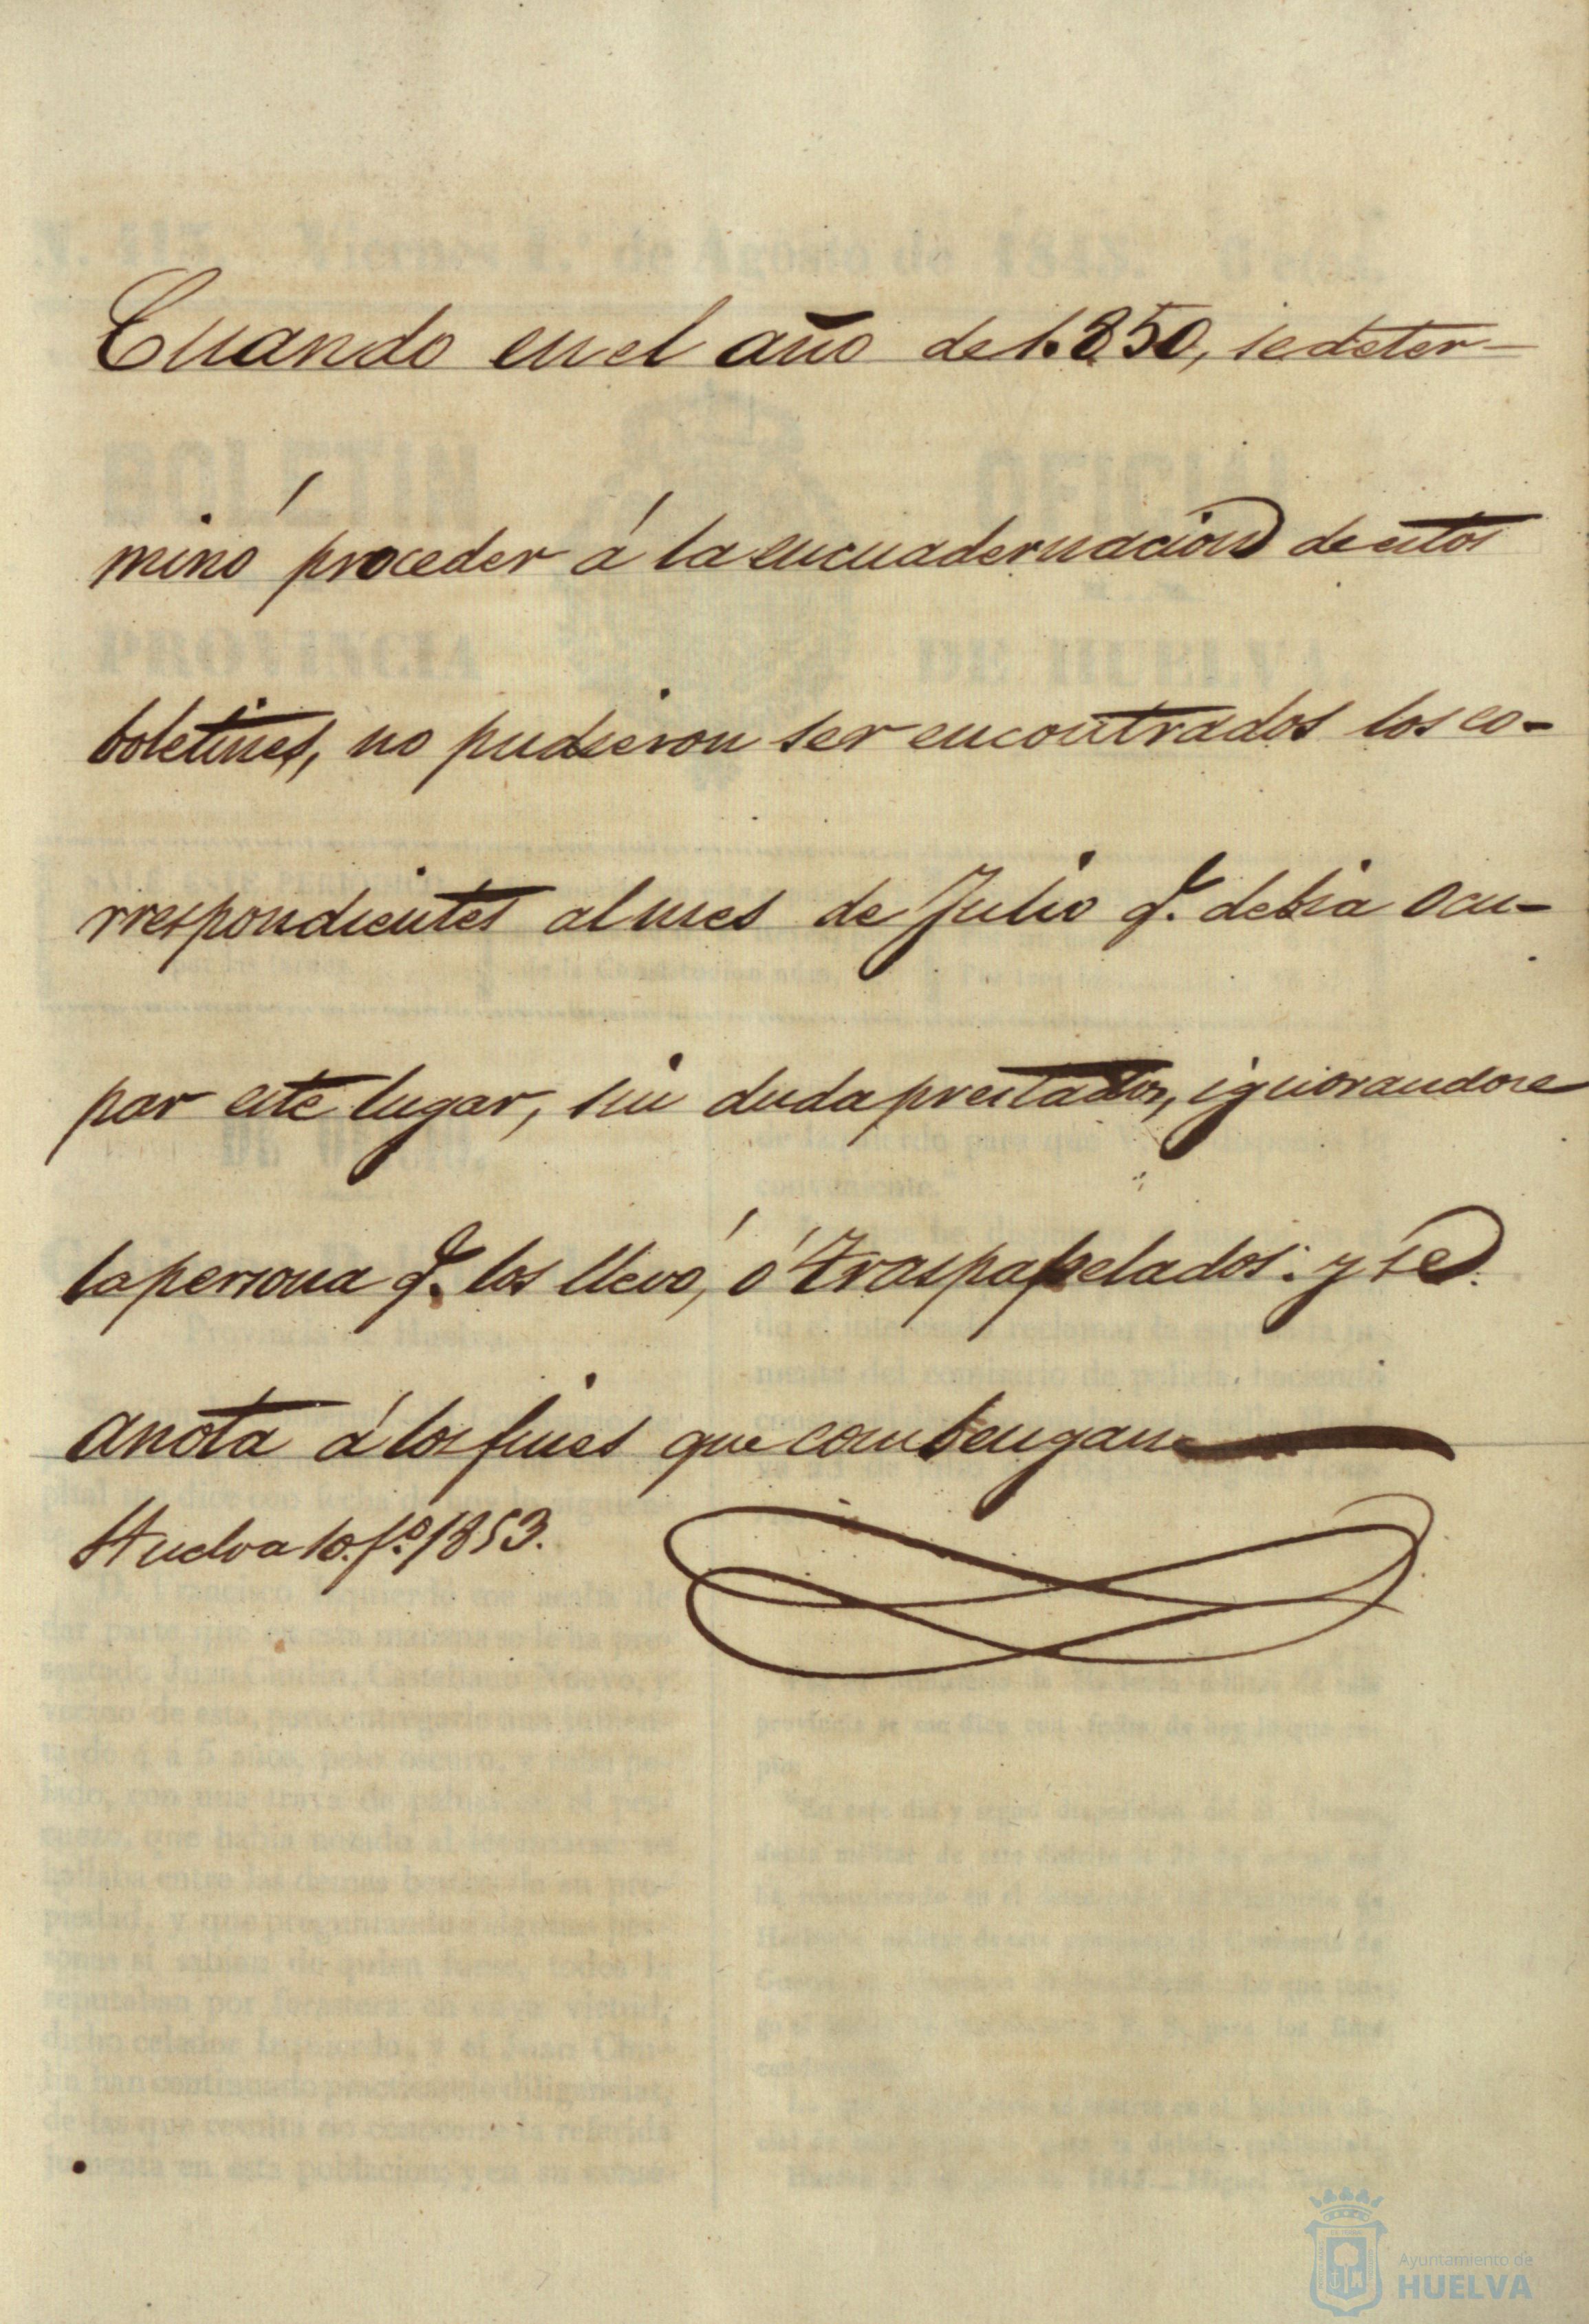 Cuando en el año de 1.850, se deter-
minó proceder á la encuadernacion de estos
boletines, no pudieron ser encontrados los co-
rrespondientes al mes de Julio q. debia ocu-
par este lugar, sin duda prestados, ignorandose
la persona q. los llevó, ó traspapelados: y se
anota á los fines que combengan
Huelva 10. f.º 1853.
Ayuntamiento de
HUELVA